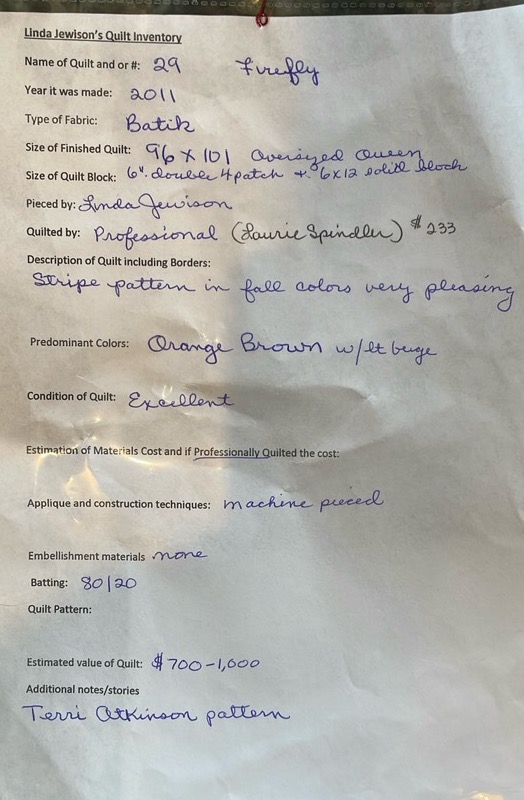 Linda Jewison's Quilt Inventory
Name of Quilt and or #: 29 Firefly
Year it was made: 2011
Type of Fabric: Batik
Size of Finished Quilt: 96 X 101 Oversized Queen
Size of Quilt Block: 6". double 4 patch + 6x12 solid block
Pieced by: Linda Jewison
Quilted by: Professional (Laurie Spindler) $233
Description of Quilt including Borders:
Stripe pattern in fall colors very pleasing
Predominant Colors: Orange Brown w/lt beige
Condition of Quilt: Excellent
Estimation of Materials Cost and if Professionally Quilted the cost:
Applique and construction techniques: machine pieced
Embellishment materials none
Batting: 80/20
Quilt Pattern:
Estimated value of Quilt: $700-1,000
Additional notes/stories
Terri Atkinson pattern